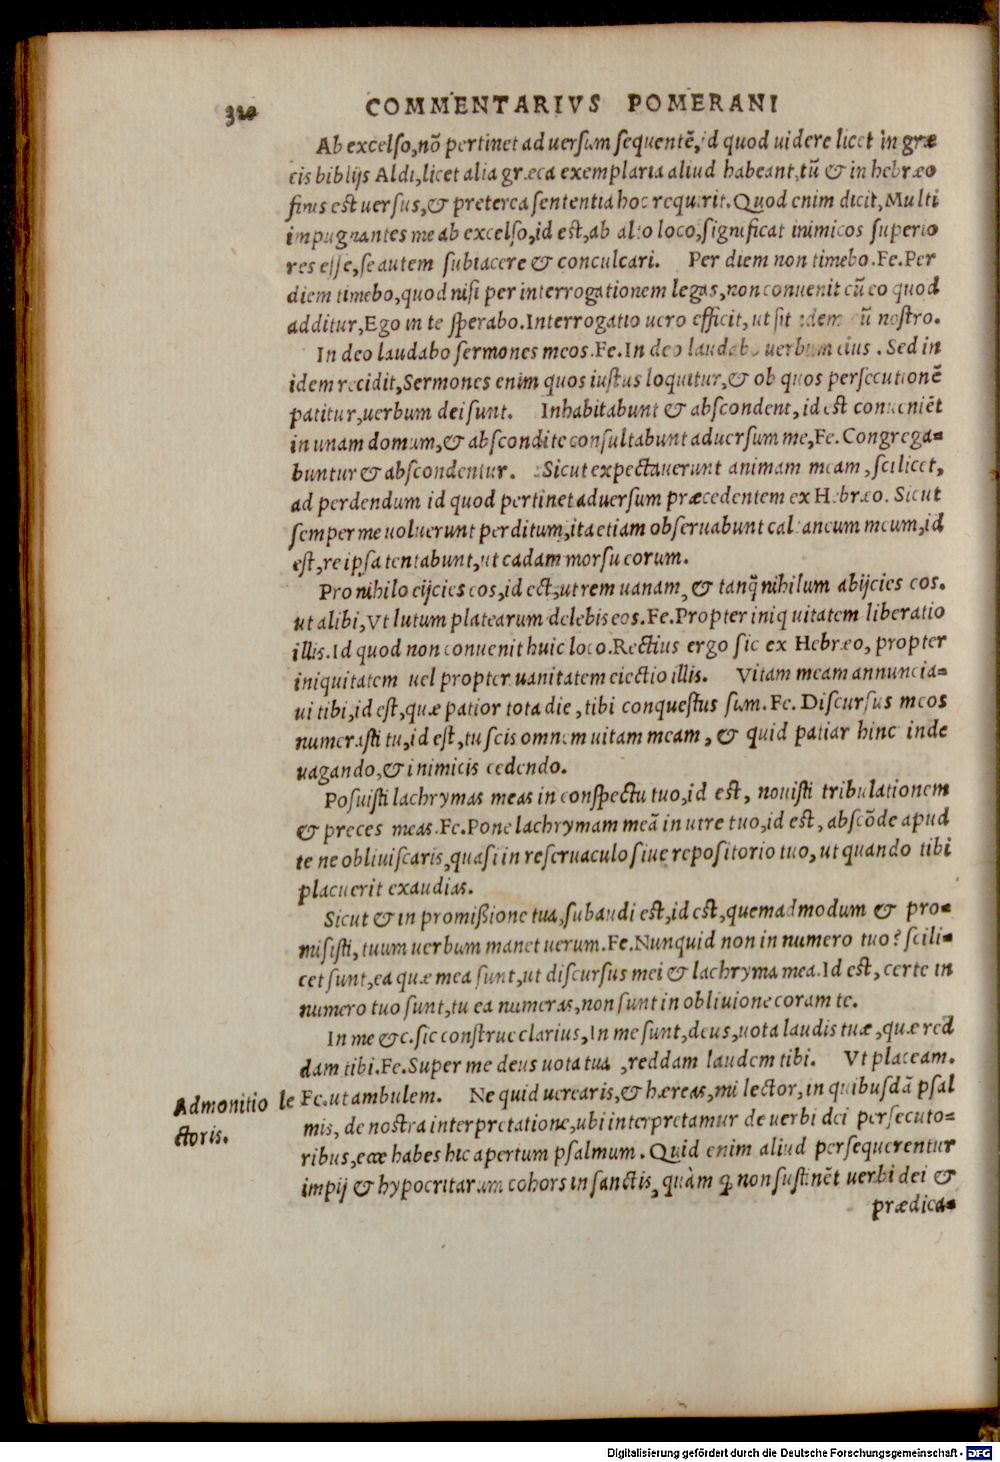 320
COMMENTARIVS POMERANI
Ab excelso, nō pertinet ad uersum sequentē, id quod uidere licet in græ
cis biblijs Aldi, licet alia græca exemplaria aliud habeant, tū & in hebræo
finis est uersus, & preterea sententia hoc requirit. Quod enim dicit, Multi
impugnantes me ab excelso, id est, ab alto loco, significat inimicos superio
res esse, se autem subiacere & conculcari. Per diem non timebo. Fe. Per
diem timebo, quod nisi per interrogationem legas, non conuenit cū eo quod
additur, Ego in te sperabo. Interrogatio uero efficit, ut sit idem cū nostro.
In deo laudabo sermones meos. Fe. In deo laudabo uerbum eius. Sed in
idem recidit, Sermones enim quos iustus loquitur, & ob quos persecutionē
patitur, uerbum dei sunt. Inhabitabunt & abscondent, id est conueniēt
in unam domum, & abscondite consultabunt aduersum me, Fe. Congrega-
buntur & abscondentur. Sicut expectauerunt animam meam, scilicet,
ad perdendum id quod pertinet ad uersum præcedentem ex Hebræo. Sicut
semper me uoluerunt perditum, ita etiam obseruabunt calcaneum meum, id
est, re ipsa tentabunt, ut cadam morsu eorum.
Pro nihilo eijcies eos, id est, ut rem uanam, & tanq̃ nihilum abijcies eos.
ut alibi, Vt lutum platearum delebis eos. Fe. Propter iniquitatem liberatio
illis. Id quod non conuenit huic loco. Rectius ergo sic ex Hebræo, propter
iniquitatem uel propter uanitatem eiectio illis. Vitam meam annuncia-
ui tibi, id est, quæ patior tota die, tibi conquestus sum. Fe. Discursus meos
numerasti tu, id est, tu scis omnem uitam meam, & quid patiar hinc inde
uagando, & inimicis cedendo.
Posuisti lachrymas meas in conspectu tuo, id est, nouisti tribulationem
& preces meas. Fe. Pone lachrymam meā in utre tuo, id est, abscōde apud
te ne obliuiscaris, quasi in reseruaculo siue repositorio tuo, ut quando tibi
placuerit exaudias.
Sicut & in promißione tua, subaudi est, id est, quemadmodum & pro-
misisti, tuum uerbum manet uerum. Fe. Nunquid non in numero tuo? scili-
cet sunt, ea quæ mea sunt, ut discursus mei & lachryma mea. Id est, certe in
numero tuo sunt, tu ea numeras, non sunt in obliuione coram te.
In me &c. sic construe clarius, In me sunt, deus, uota laudis tuæ, quæ red
dam tibi. Fe. Super me deus uota tua, reddam laudem tibi. Vt placeam.
Fe. ut ambulem. Ne quid uerearis, & hæreas, mi lector, in quibusdā psal
mis, de nostra interpretatione, ubi interpretamur de uerbi dei persecuto-
ribus, ecce habes hic apertum psalmum. Quid enim aliud persequerentur
impij & hypocritarum cohors in sanctis, quàm q̃ non sustinēt uerbi dei &
prædica-
Admonitio le
ctoris.
Digitalisierung gefördert durch die Deutsche Forschungsgemeinschaft - DFG